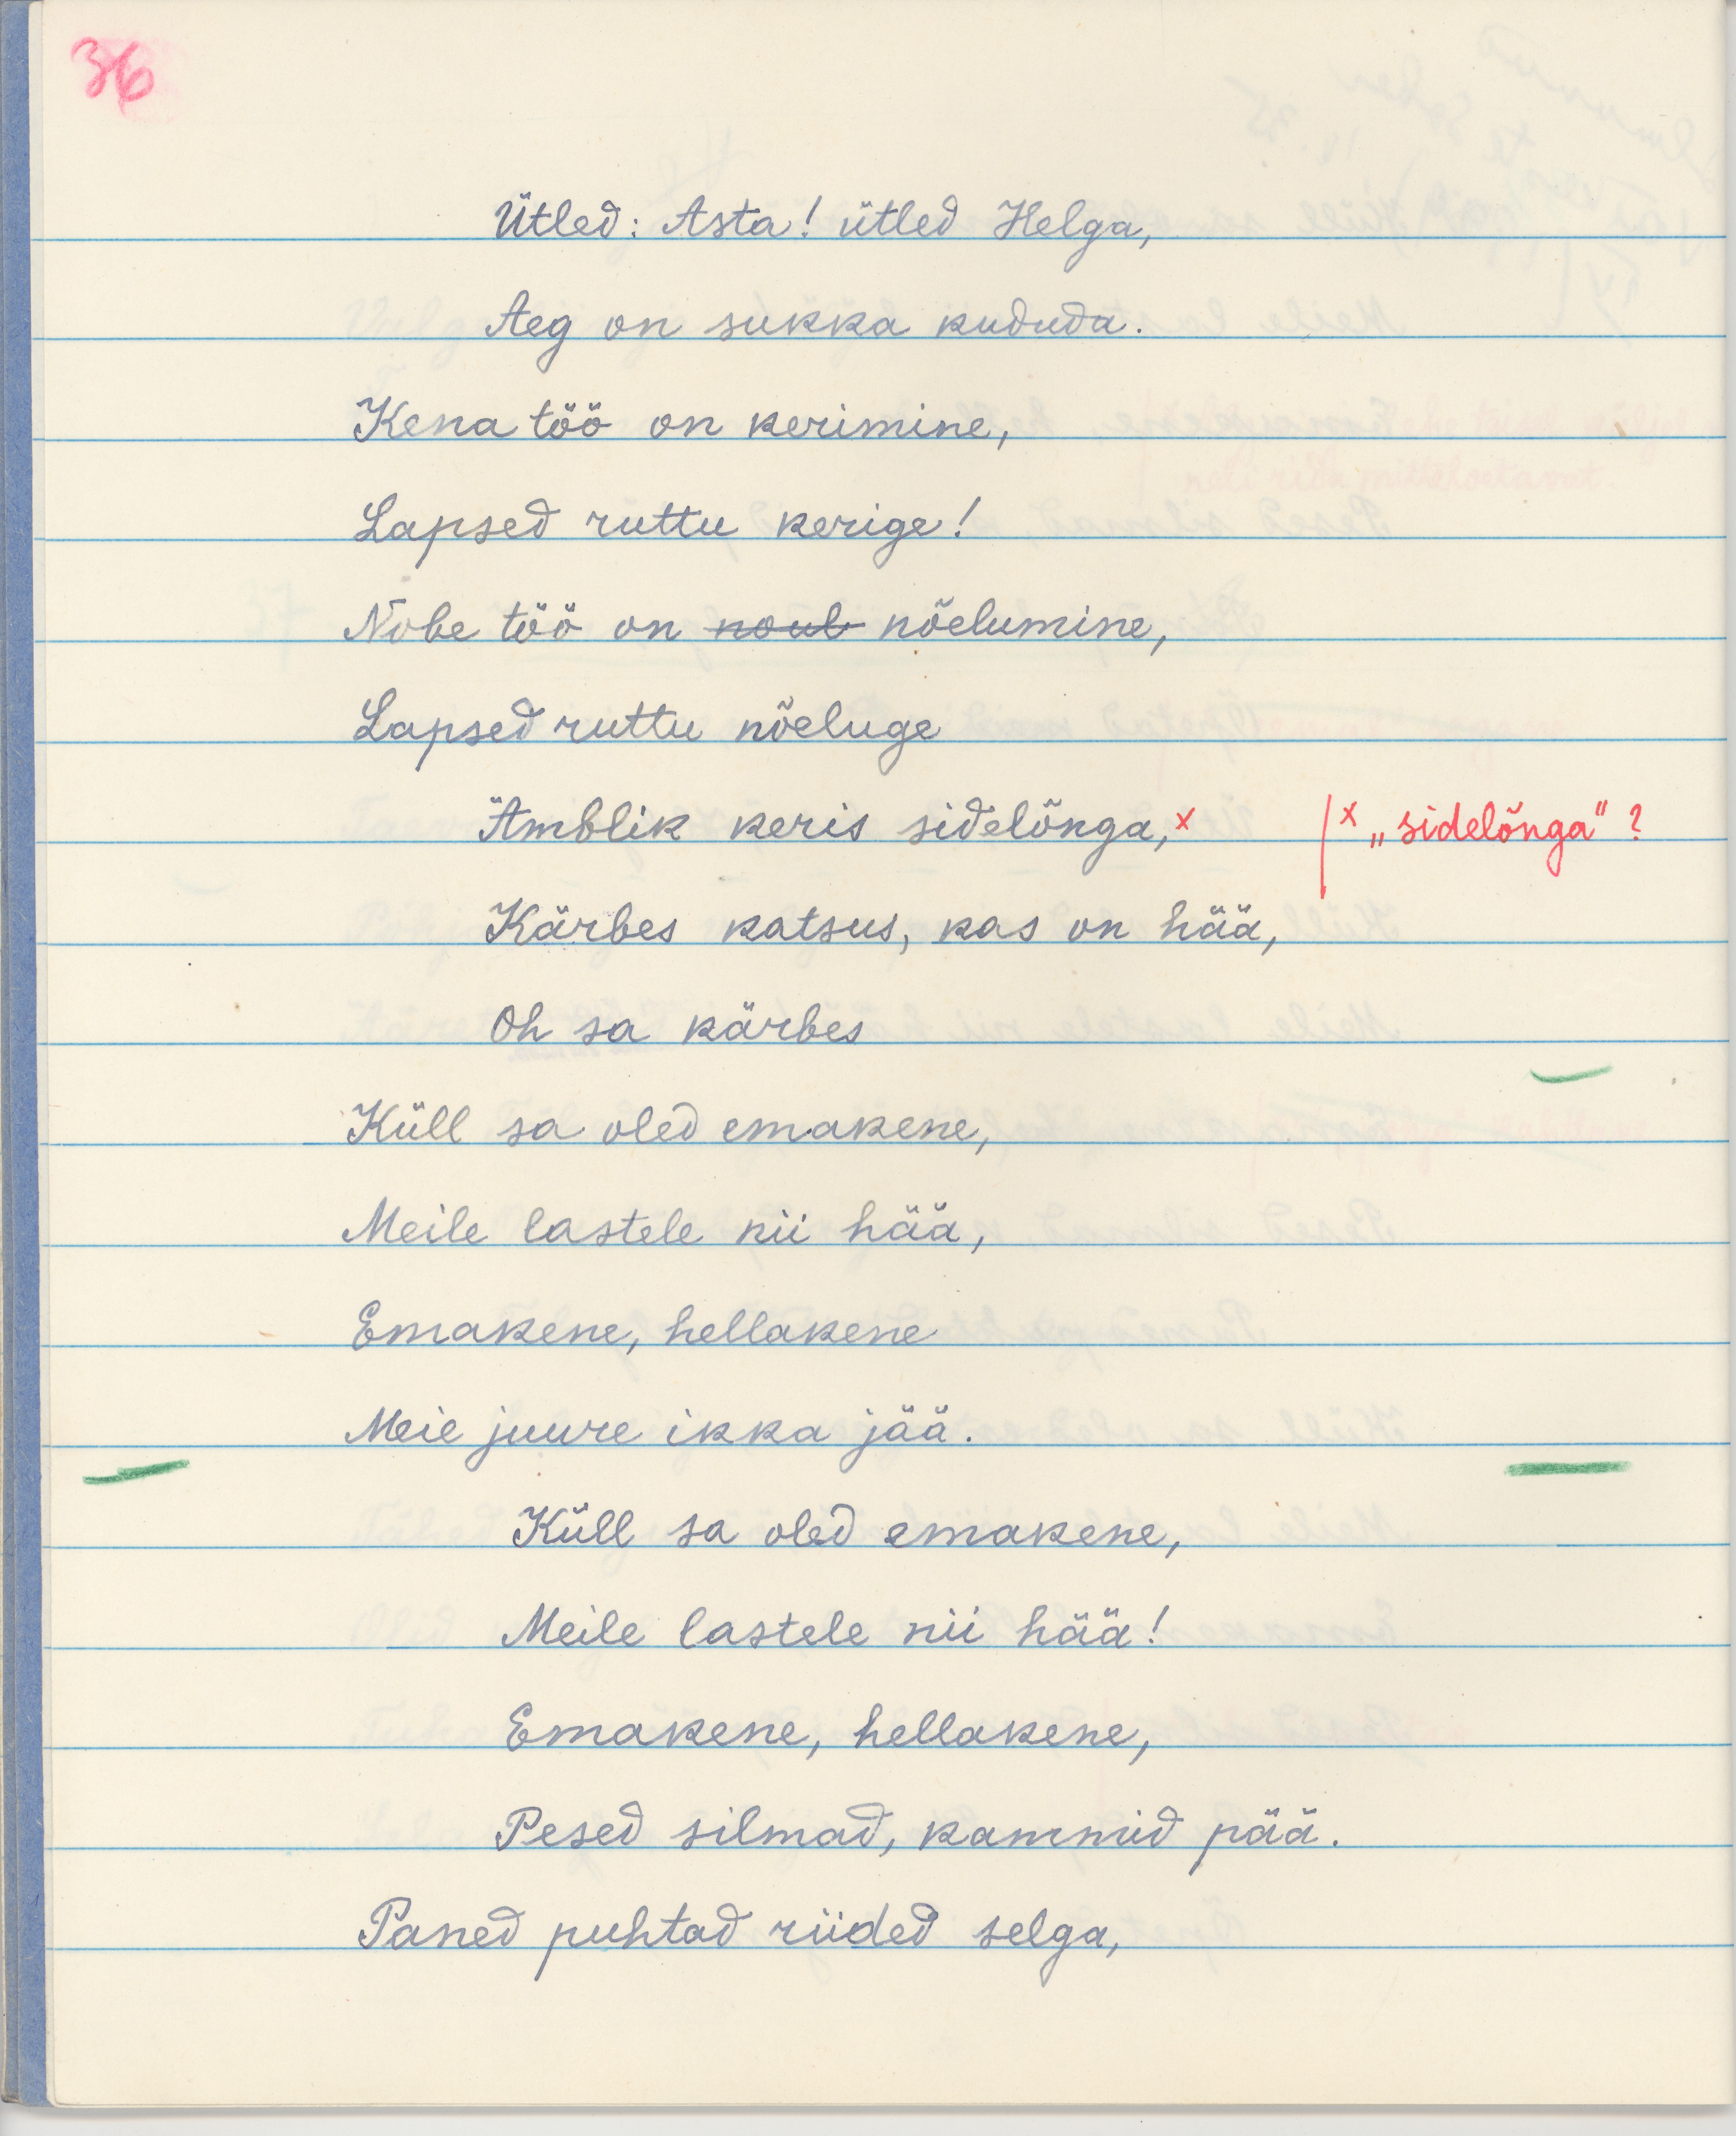 36
Ütled: Asta! ütled Helga,
Aeg on sukka kududa.
Kena töö on kerimine,
Lapsed ruttu kerige!
Nobe töö on noul nõelumine,
Lapsed ruttu nõeluge
Ämblik keris sidelõnga,x |x „sidelõnga" ?
Kärbes katsus, kas on hää,
Oh sa kärbes
Küll sa oled emakene,
Meile lastele nii hää,
Emakene, hellakene
Meie juure ikka jää.
Küll sa oled emakene,
Meile lastele nii hää!
Emakene, hellakene,
Pesed silmad, kammid pää.
Paned puhtad riided selga,